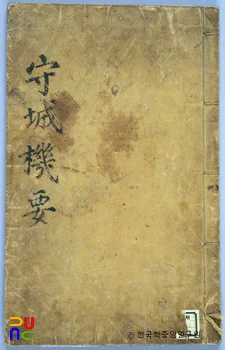 守城機要
© 한국학중앙연구원